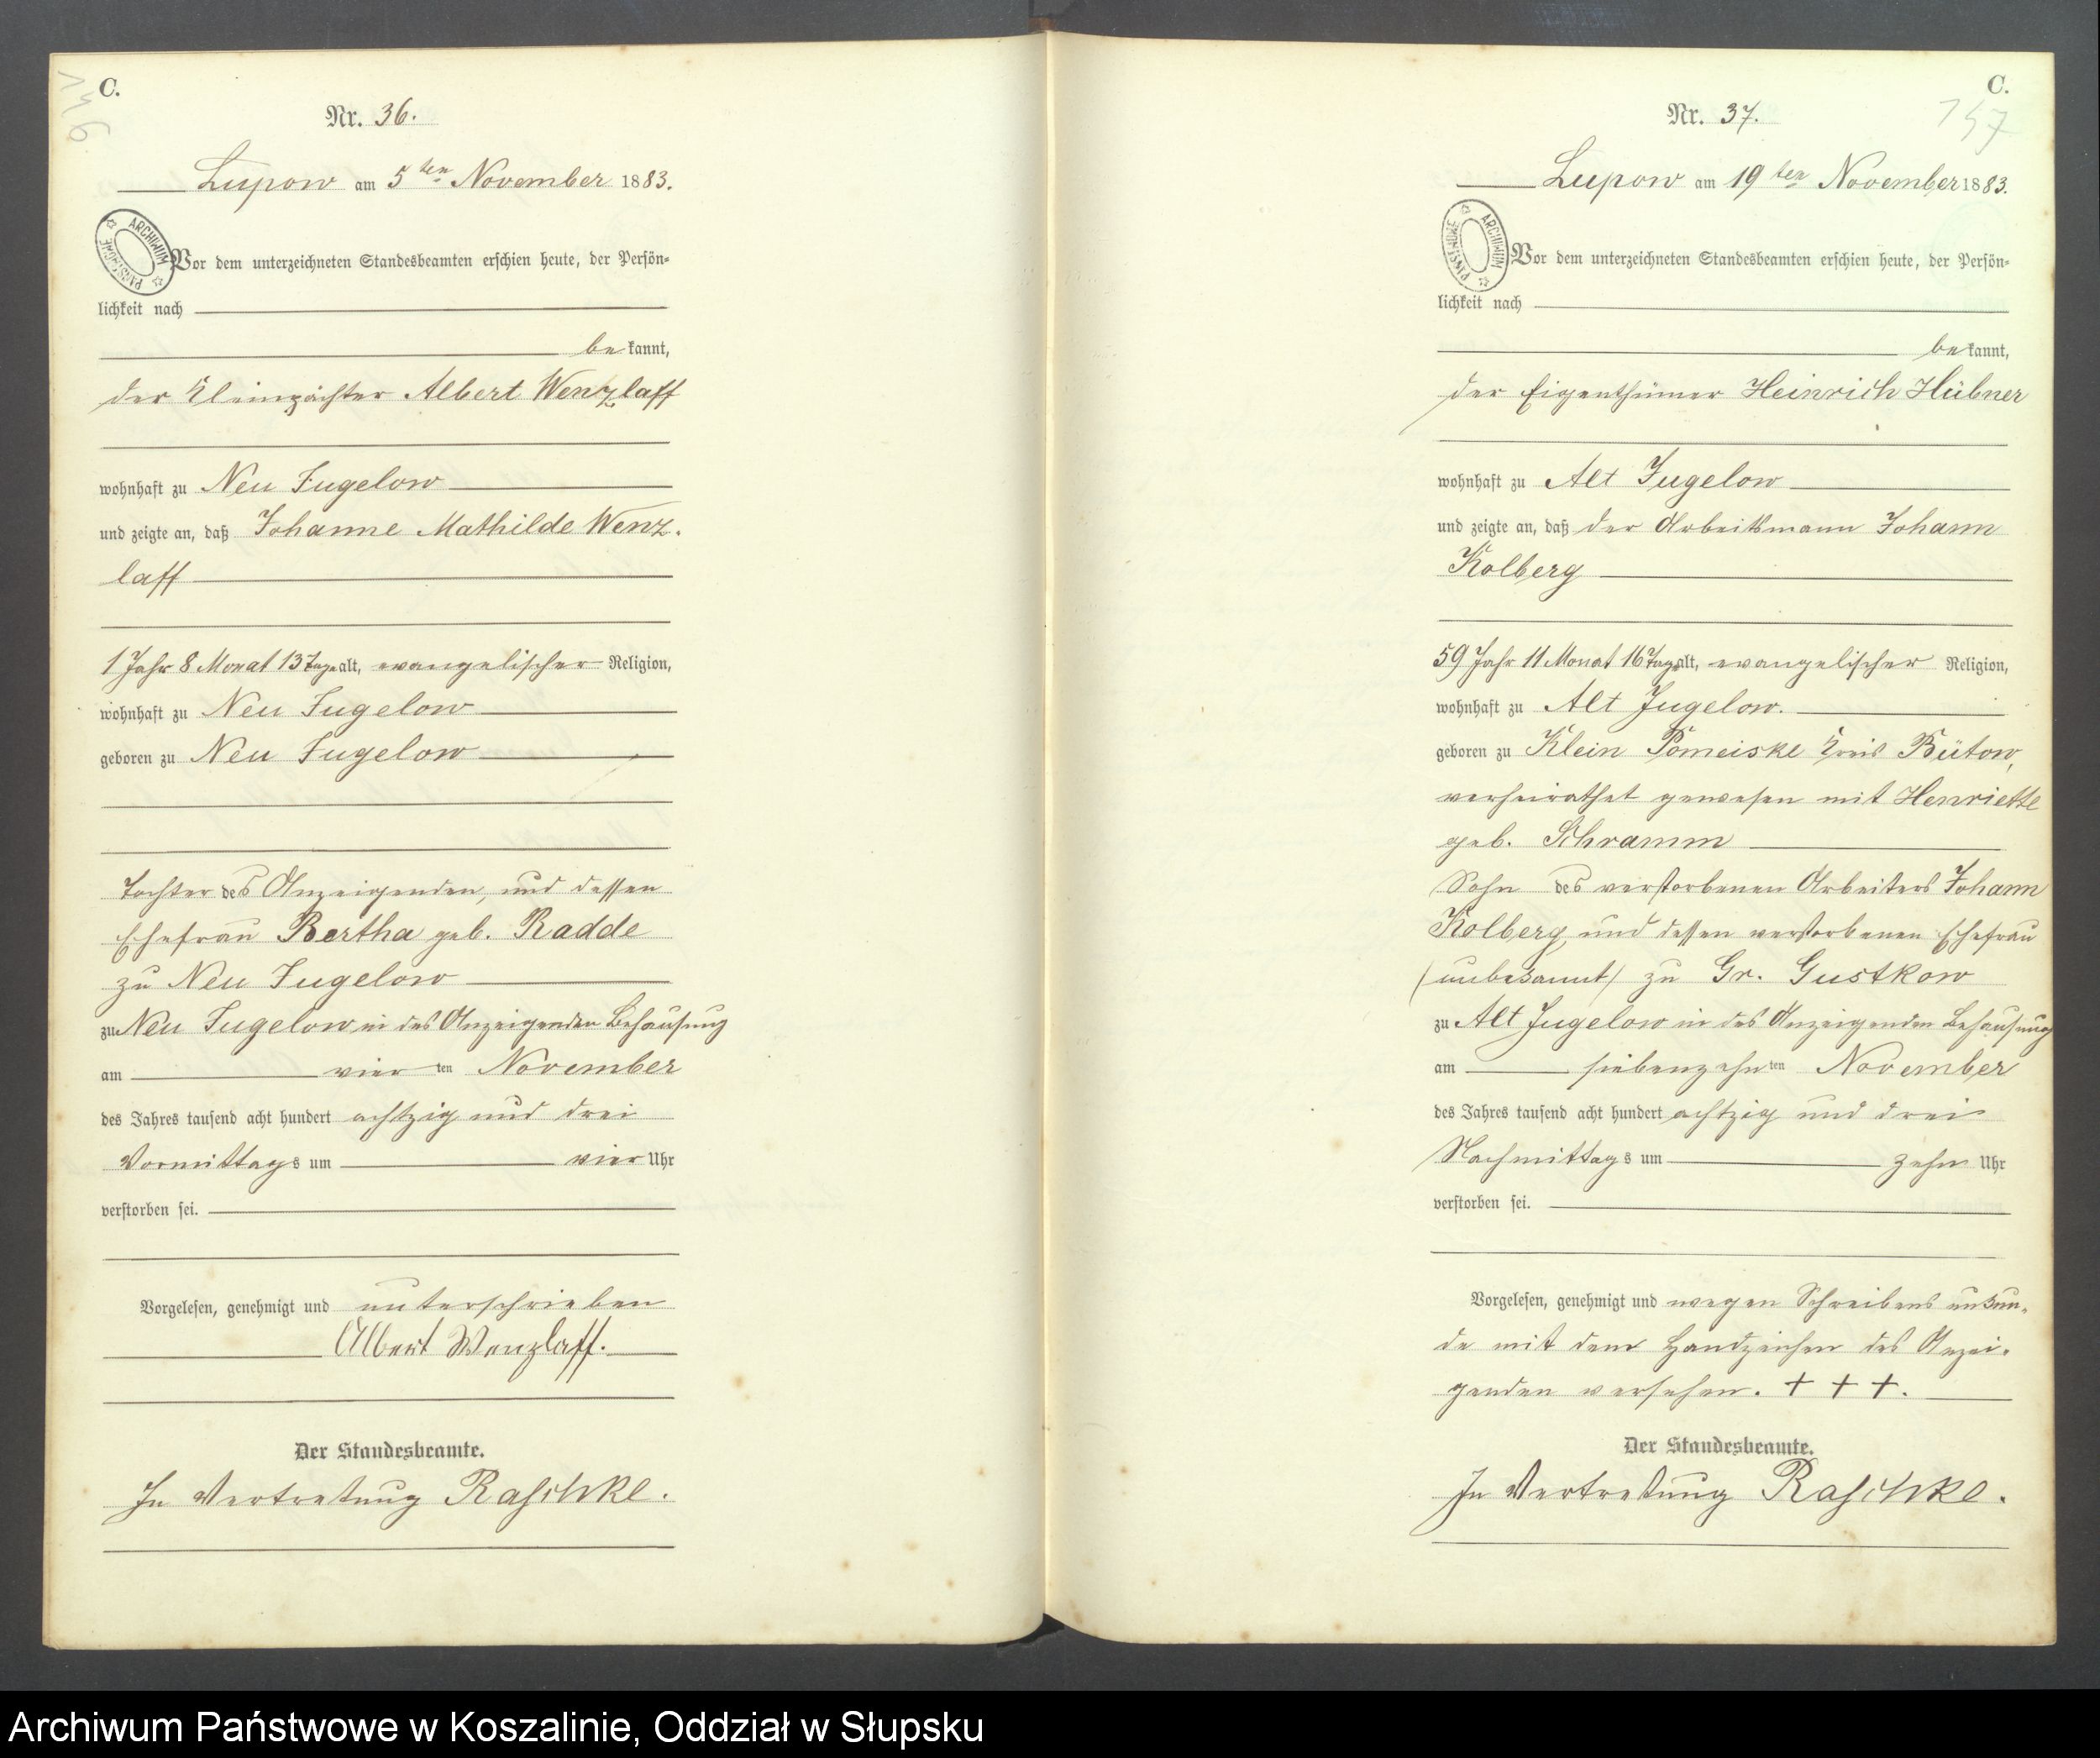 C.
146
Nr. 36.
Lupow am 5ten November 1883.
ARCHIWUM PAŃSTWOWE
Vor dem unterzeichneten Standesbeamten erschien heute, der Persön-
lichkeit nach
bekannt,
der Kleinpächter Albert Wenzlaff
wohnhaft zu Neu Jugelow
und zeigte an, daß Johanne Mathilde Wenz-
laff
1 Jahr 8 Monat 13 Tage alt, evangelischer Religion,
wohnhaft zu Neu Jugelow
geboren zu Neu Jugelow
Tochter des Anzeigenden, und dessen
Ehefrau Bertha geb. Radde
zu Neu Jugelow
zu Neu Jugelow in des Anzeigenden Behausung
am vierten November
des Jahres tausend acht hundert achtzig und drei
Vormittags um vier Uhr
verstorben sei.
Vorgelesen, genehmigt und unterschrieben
Albert Wenzlaff.
Der Standesbeamte.
In Vertretung Raschke.
C.
147
Nr. 37.
Lupow am 19ten November 1883.
ARCHIWUM PAŃSTWOWE
Vor dem unterzeichneten Standesbeamten erschien heute, der Persön-
lichkeit nach
bekannt,
der Eigenthümer Heinrich Hübner
wohnhaft zu Alt Jugelow
und zeigte an, daß der Arbeitsmann Johann
Kolberg
59 Jahr 11 Monat 16 Tage alt, evangelischer Religion,
wohnhaft zu Alt Jugelow.
geboren zu Klein Pomeiske Kreis Bütow,
verheirathet gewesen mit Henriette
geb. Schramm
Sohn des verstorbenen Arbeiters Johann
Kolberg, und dessen verstorbenen Ehefrau
/unbekannt/ zu Gr. Gustkow
zu Alt Jugelow in des Anzeigenden Behausung
am siebenzehnten November
des Jahres tausend acht hundert achtzig und drei
Nachmittags um zehn Uhr
verstorben sei.
Vorgelesen, genehmigt und wegen Schreibens unkun-
de mit dem Handzeichen des Anzei-
genden versehen. + + +.
Der Standesbeamte.
In Vertretung Raschke.
Archiwum Państwowe w Koszalinie, Oddział w Słupsku